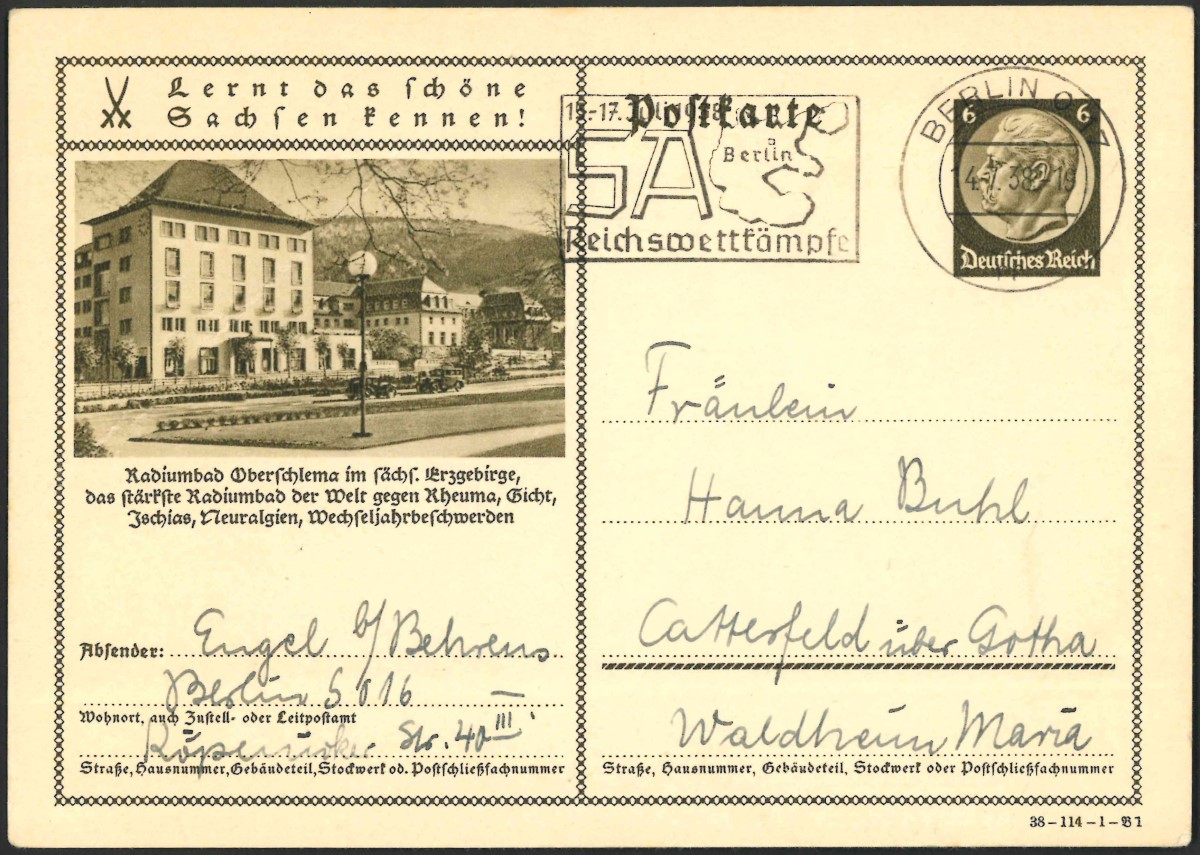 Lernt das schöne
Sachsen kennen!
Postkarte
15.-17. Juli 1938
SA
Berlin
Reichswettkämpfe
BERLIN O 17
14.7.38.-19
6 6
Deutsches Reich
Radiumbad Oberschlema im sächs. Erzgebirge,
das stärkste Radiumbad der Welt gegen Rheuma, Gicht,
Ischias, Neuralgien, Wechseljahrbeschwerden
Absender: Engel b/ Behrens
Berlin SO 16
Wohnort, auch Zustell- oder Leitpostamt
Köpenicker Str. 40 III
Straße, Hausnummer, Gebäudeteil, Stockwerk od. Postschließfachnummer
Fräulein
Hanna Buhl
Catterfeld über Gotha
Waldheim Maria
Straße, Hausnummer, Gebäudeteil, Stockwerk oder Postschließfachnummer
38-114-1-B1